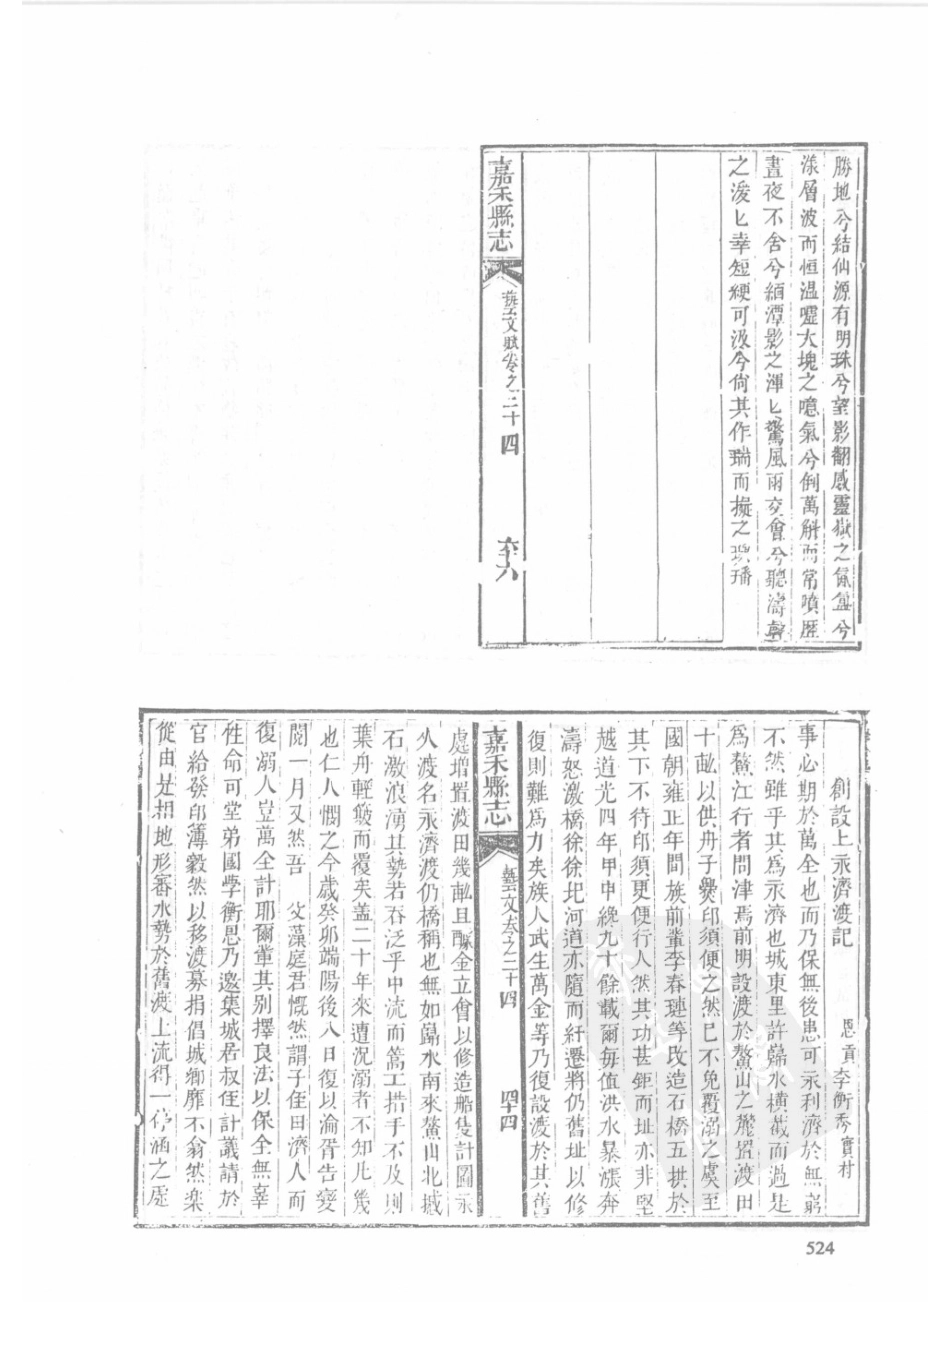 勝地兮結仙源有明珠兮望影翻感靈嶽之氤氳兮
漾層波而恒温噓大塊之噫氣兮倒萬斛而常噴歷
晝夜不舍兮緬潭影之渾匕驚風雨交會兮聽濤翻
之湲匕幸短綆可汲今尙其作瑞而擬之璵璠
嘉禾縣志
藝文賦卷之二十四
六八
創設上永濟渡記
恩貢李衡秀寶村
事必期於萬全也而乃保無後患可永利濟於無窮
不然雖乎其爲永濟也城東里許巋水橫截而過是
爲鰲江行者問津焉前明設渡於鰲山之麓置渡田
十畝以供舟子爨卭須便之然巳不免覆溺之虞至
國朝雍正年間族前輩李春璉等改造石橋五拱於
其下不待卭須更便行人然其功甚鉅而址亦非堅
越道光四年甲申纔九十餘載爾每值洪水暴漲奔
濤怒激橋徐徐圯河道亦隨而紆遷將仍舊址以修
復則難爲力矣族人武生萬金等乃復設渡於其舊
嘉禾縣志
藝文卷之二十四
四十四
處增置渡田幾畝且醵金立會以修造船隻計圖永
久渡名永濟渡仍橋稱也無如巋水南來鰲山北撼
石激浪湧其勢若吞泛乎中流而篙工措手不及則
葉舟輕皷而覆矣蓋二十年來遭沉溺者不知凡幾
也仁人憫之今歲癸卯端陽後八日復以淪胥告變
閱一月又然吾　父藻庭君慨然謂子侄曰濟人而
復溺人豈萬全計耶爾輩其别擇良法以保全無辜
性命可堂弟國學衡思乃邀集城居叔侄計議請於
官給發印簿毅然以移渡募捐倡城鄉靡不翕然樂
從由是相地形審水勢於舊渡上流得一停涵之處
524